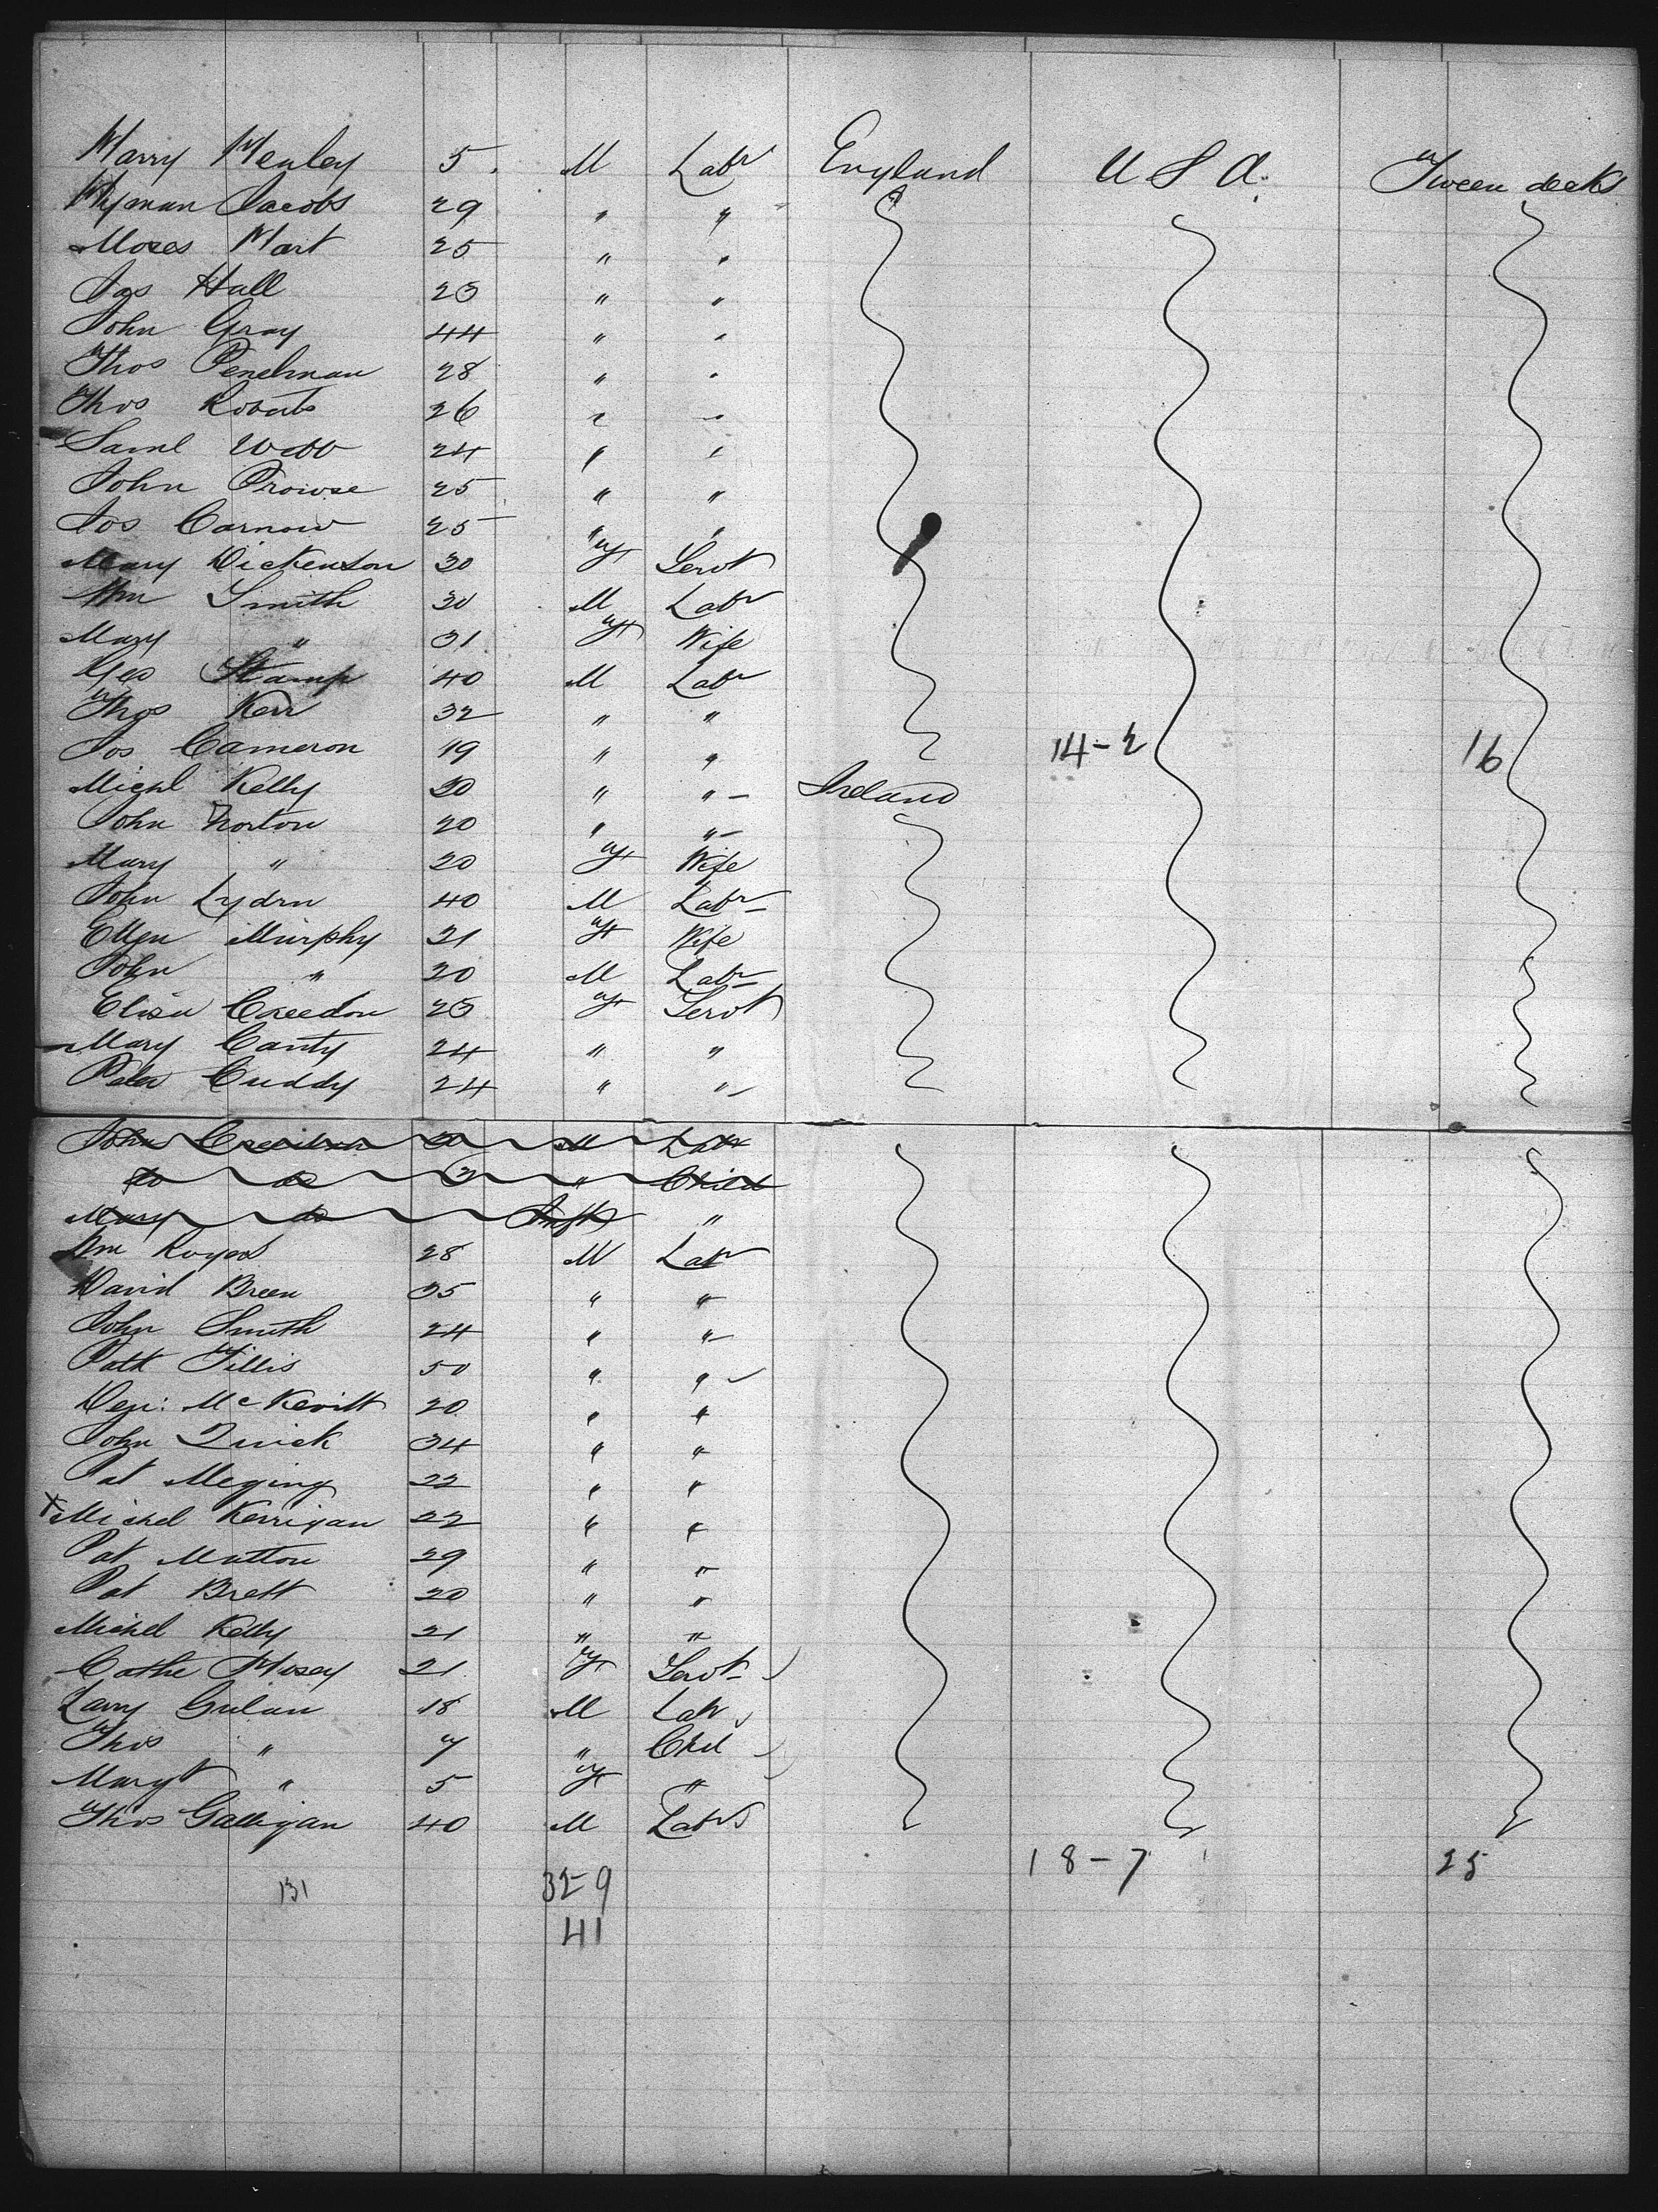 Harry Henley 5. M Labr England U S A. Tween decks
Hyman Jacobs 29 " "
Moses Hart 25 " "
Jas Hall 23 " "
John Gray 44 " "
Thos Penelman 28 " "
Thos Roberts 26 " "
Saml Webb 24 " "
John Prowse 25 " "
Jos Carnow 25 " "
Mary Dickenson 30 F Servt
Wm Smith 30 M Labr
Mary " 31 F Wife
Geo Stamp 40 M Labr
Thos Kerr 32 " "
Jos Cameron 19 " " 14-2 16
Michl Kelly 20 " " Ireland
John Norton 20 " "
Mary " 20 F Wife
John Lydrn 40 M Labr
Ellen Murphy 21 F Wife
John " 20 M Labr
Eliza Creedon 23 F Servt
Mary Canty 24 " "
Peter Cuddy 24 " "
John M Labr
do do 3 " Child
Mary do Inft "
Wm Rogers 28 M Labr
David Breen 35 " "
John Smith 24 " "
Patk Tillis 50 " "
McKevitt 20 " "
John Quick 34 " "
Pat Meging 22 " "
x Michel Kerrigan 22 " "
Pat Mutton 29 " "
Pat Brett 20 " "
Michel Kelly 21 " "
Cathe Hosey 21 F Servt
Larry Gulan 18 M Labr
Thos " 7 " Chd
Margt " 5 F "
Thos Galligan 40 M Labr
18-7 25
131 32-9
41